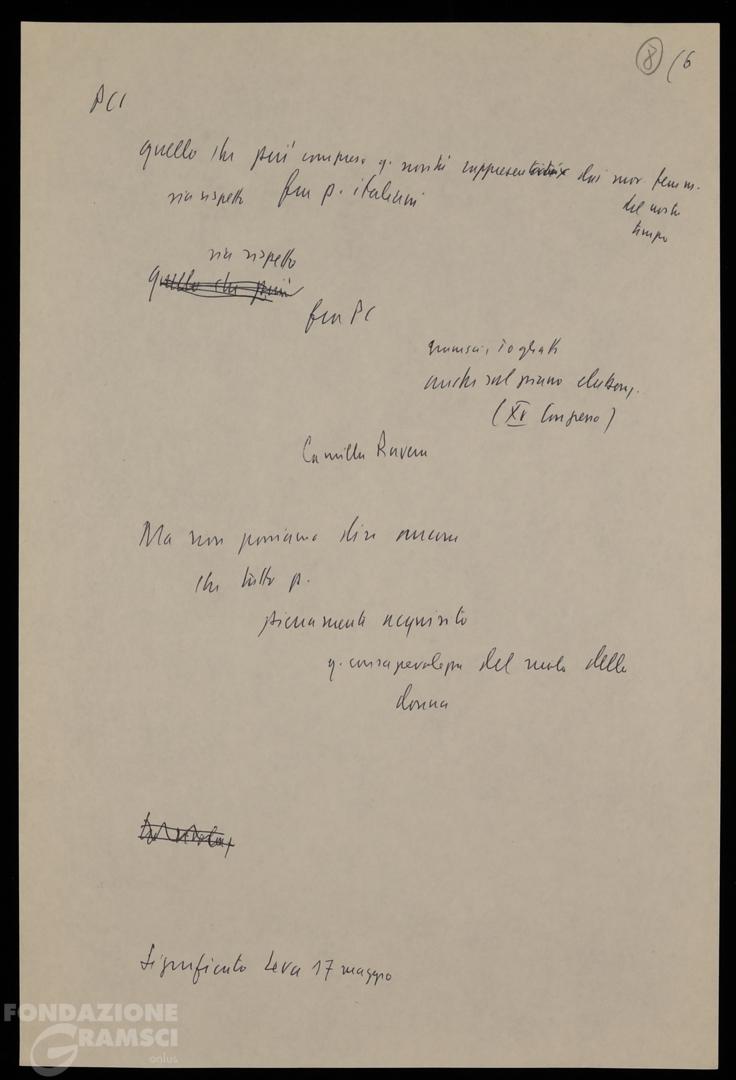 8 (6
PCI
quello che più compreso q. novità rappresentatrix dai mov. femm.
del nostro
tempo
sia rispetto fra p. italiani
sia rispetto
quello che più
fra PC
Gramsci, Togliatti
anche sul piano elabory.
(XV Congresso)
Camilla Ravera
Ma non possiamo dire ancora
che tutto p.
pienamente acquisito
q. consapevolezza del ruolo della
donna
Significato leva 17 maggio
FONDAZIONE
GRAMSCI
onlus